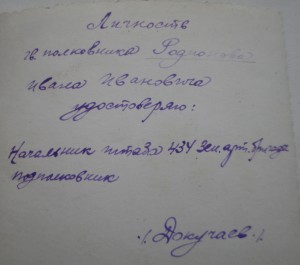 Личность
гв. полковника Родионова
Ивана Ивановича
удостоверяю:
Начальник штаба 434 зен. арт. бригады
подполковник
./. Докучаев ./.